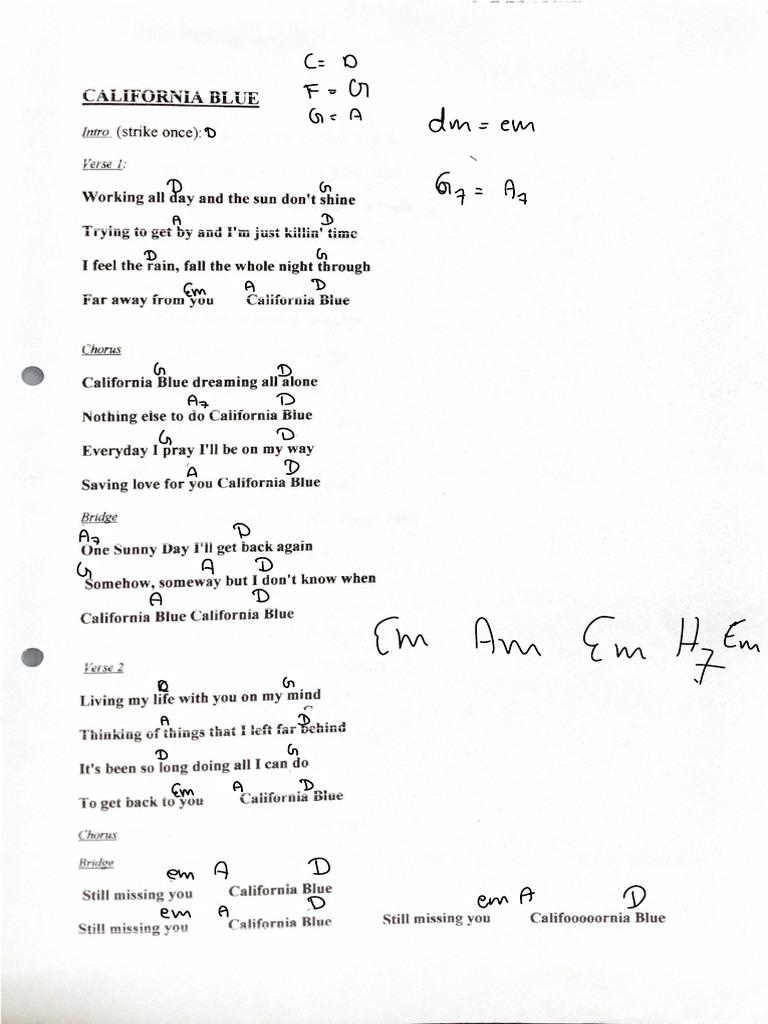 C = D
CALIFORNIA BLUE
F = G
G = A
dm = em
Intro (strike once): D
Verse 1:
G7 = A7
D G
Working all day and the sun don't shine
A D
Trying to get by and I'm just killin' time
D G
I feel the rain, fall the whole night through
Em A D
Far away from you California Blue
Chorus
G D
California Blue dreaming all alone
A7 D
Nothing else to do California Blue
G D
Everyday I pray I'll be on my way
A D
Saving love for you California Blue
Bridge
A7 D
One Sunny Day I'll get back again
G A D
Somehow, someway but I don't know when
A D
California Blue California Blue
Em Am Em H7 Em
Verse 2
D G
Living my life with you on my mind
A D
Thinking of things that I left far behind
D G
It's been so long doing all I can do
Em A D
To get back to you California Blue
Chorus
Bridge
em A D
Still missing you California Blue
em A D em A D
Still missing you California Blue Still missing you Califooooornia Blue